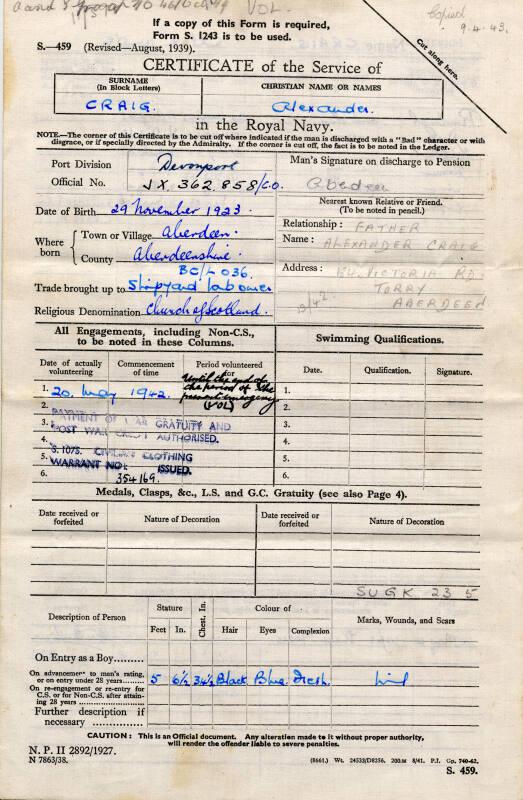 VOL.
Copied
9.4.43.
If a copy of this Form is required,
Form S. 1243 is to be used.
Cut along here.
S.—459 (Revised—August, 1939).
CERTIFICATE of the Service of
SURNAME
(In Block Letters)
CHRISTIAN NAME OR NAMES
CRAIG.
Alexander.
in the Royal Navy.
NOTE.—The corner of this Certificate is to be cut off where indicated if the man is discharged with a "Bad" character or with
disgrace, or if specially directed by the Admiralty. If the corner is cut off, the fact is to be noted in the Ledger.
Port Division Devonport
Man's Signature on discharge to Pension
Official No. JX. 362858/C.O.
Aberdeen
Date of Birth 29 November 1923.
Nearest known Relative or Friend.
(To be noted in pencil.)
Where born
Town or Village Aberdeen.
County Aberdeenshire.
Relationship: FATHER
Name: ALEXANDER CRAIG
BC/L 036.
Address: VICTORIA RD.
TORRY
ABERDEEN
Trade brought up to Shipyard labourer
Religious Denomination Church of Scotland.
All Engagements, including Non-C.S.,
to be noted in these Columns.
Swimming Qualifications.
Date of actually
volunteering
Commencement
of time
Period volunteered
for
Date.
Qualification.
Signature.
Until the end of
the period of the
present emergency
(VOL)
1. 20. May 1942.
2.
3.
4.
5.
6.
PAYMENT OF WAR GRATUITY AND
POST WAR CREDIT AUTHORISED.
S. 1075. CIVILIAN CLOTHING
WARRANT NO: ISSUED.
354169.
1.
2.
3.
4.
5.
6.
Medals, Clasps, &c., L.S. and G.C. Gratuity (see also Page 4).
Date received or
forfeited
Nature of Decoration
Date received or
forfeited
Nature of Decoration
SUGK 23 5
Description of Person
Stature
Feet
In.
Chest. In.
Colour of
Hair
Eyes
Complexion
Marks, Wounds, and Scars
On Entry as a Boy
On advancement to man's rating,
or on entry under 28 years
5 6½ 34½ Black Blue Fresh. Nil
On re-engagement or re-entry for
C.S. or for Non-C.S. after attain-
ing 28 years
Further description if
necessary
CAUTION: This is an Official document. Any alteration made to it without proper authority,
will render the offender liable to severe penalties.
N. P. II 2892/1927.
N 7863/38.
(8661.) Wt. 24533/D8256. 200M 8/41. P.I. Gp. 740-62.
S. 459.